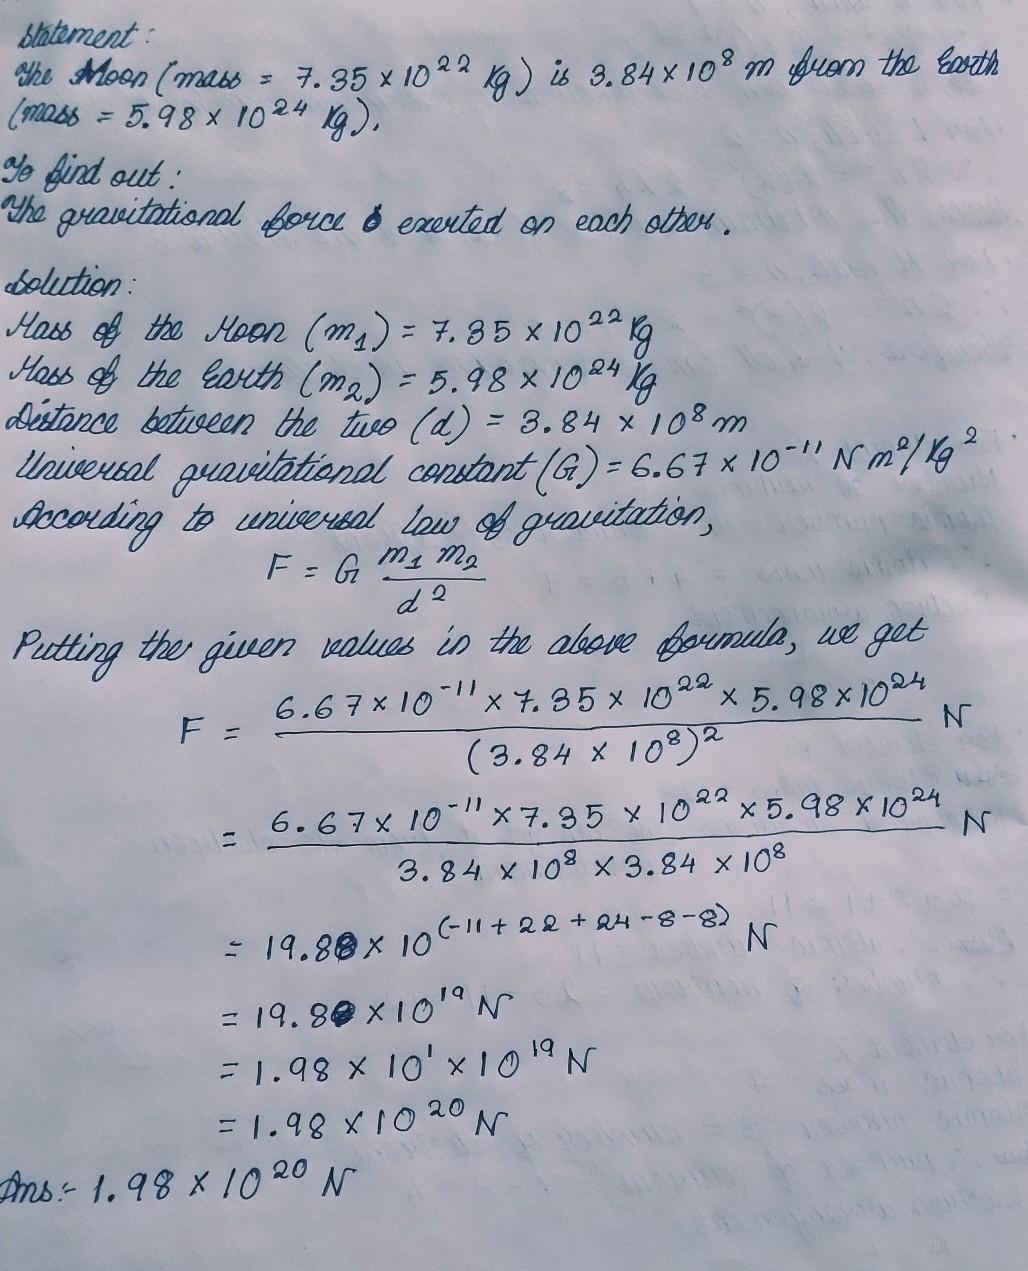 Statement:
The Moon (mass = 7.35 × 10²² Kg) is 3.84 × 10⁸ m from the Earth
(mass = 5.98 × 10²⁴ Kg).
To find out:
The gravitational force exerted on each other.
Solution:
Mass of the Moon (m₁) = 7.35 × 10²² Kg
Mass of the Earth (m₂) = 5.98 × 10²⁴ Kg
Distance between the two (d) = 3.84 × 10⁸ m
Universal gravitational constant (G) = 6.67 × 10⁻¹¹ N m²/Kg²
According to universal law of gravitation,
F = G m₁ m₂ / d²
Putting the given values in the above formula, we get
F = 6.67 × 10⁻¹¹ × 7.35 × 10²² × 5.98 × 10²⁴ / (3.84 × 10⁸)² N
= 6.67 × 10⁻¹¹ × 7.35 × 10²² × 5.98 × 10²⁴ / 3.84 × 10⁸ × 3.84 × 10⁸ N
= 19.8 × 10⁽⁻¹¹⁺²²⁺²⁴⁻⁸⁻⁸⁾ N
= 19.8 × 10¹⁹ N
= 1.98 × 10¹ × 10¹⁹ N
= 1.98 × 10²⁰ N
Ans:- 1.98 × 10²⁰ N